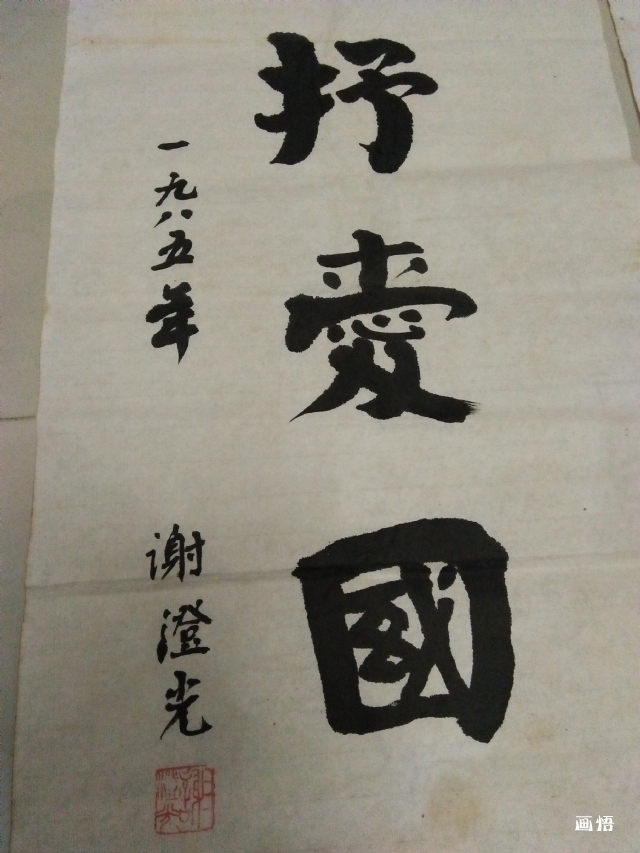 抒愛國
一九八五年
谢澄光
画悟